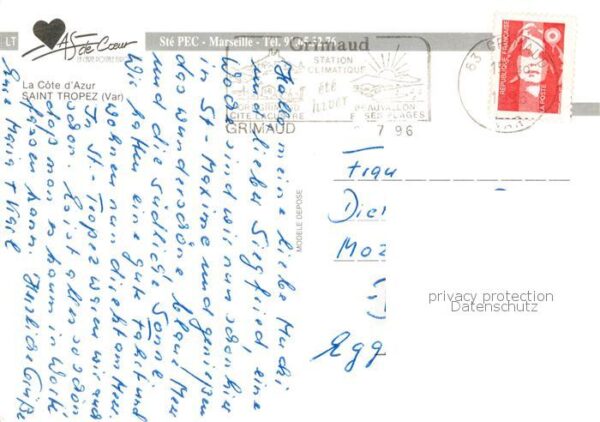 LT
AS de Cœur
LA CARTE POSTALE
Sté PEC - Marseille - Tél. 91.65.52.76
La Côte d'Azur
SAINT TROPEZ (Var)
Grimaud
STATION
CLIMATIQUE
été
hiver
CITE LACUSTRE
BEAUVALLON
SES PLAGES
GRIMAUD
7 96
REPUBLIQUE FRANÇAISE
LA POSTE
MODELE DEPOSE
Hallo meine liebe Mudei
und lieber Siegfried, eine
Woche sind wir nun schon hier
in St-Maxime und genießen
das wunderschöne blaue Meer
und die südliche Sonne.
Wir hatten eine gute Fahrt und
wohnen nun direkt am Meer.
In St-Tropez waren wir auch
schon. Es ist alles so schön
daß man es kaum in Worte
fassen kann. Herzliche Grüße
Eure Maria +
Frau
Diet
Moz
Egg
privacy protection
Datenschutz